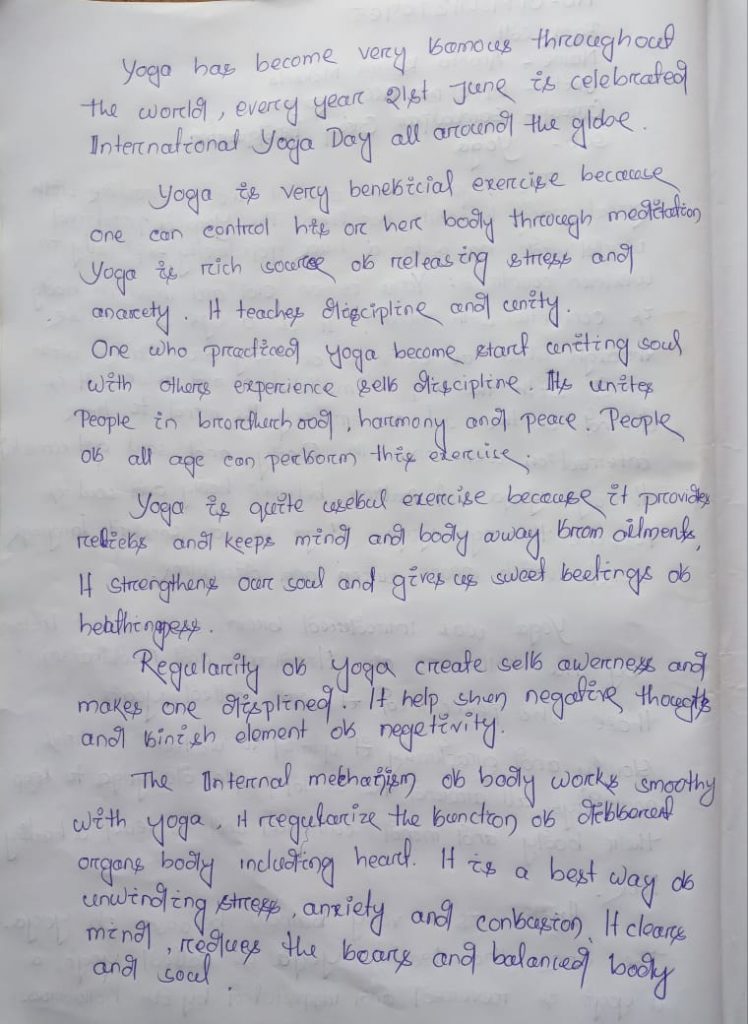 Yoga has become very famous throughout
the world, every year 21st June is celebrated
International Yoga Day all around the globe.
Yoga is very beneficial exercise because
one can control his or her body through meditation
Yoga is rich source of releasing stress and
anaxety. It teaches discipline and unity.
One who practiced yoga become start uniting soul
with others experience self discipline. Its unites
People in brortherhood, harmony and peace. People
of all age can perform this exercise.
Yoga is quite useful exercise because it provides
reliefs and keeps mind and body away from ailments,
It strengthens our soul and gives us sweet feelings of
healthingness.
Regularity of yoga create self awerness and
makes one displined. It help shun negative thoughts
and finish element of negetivity.
The Internal mechanism of body works smoothy
with yoga, it rregularize the function of different
organs body including heart. It is a best way of
unwinding stress, anxiety and confusion. It clears
mind, reduces the fears and balanced body
and soul.